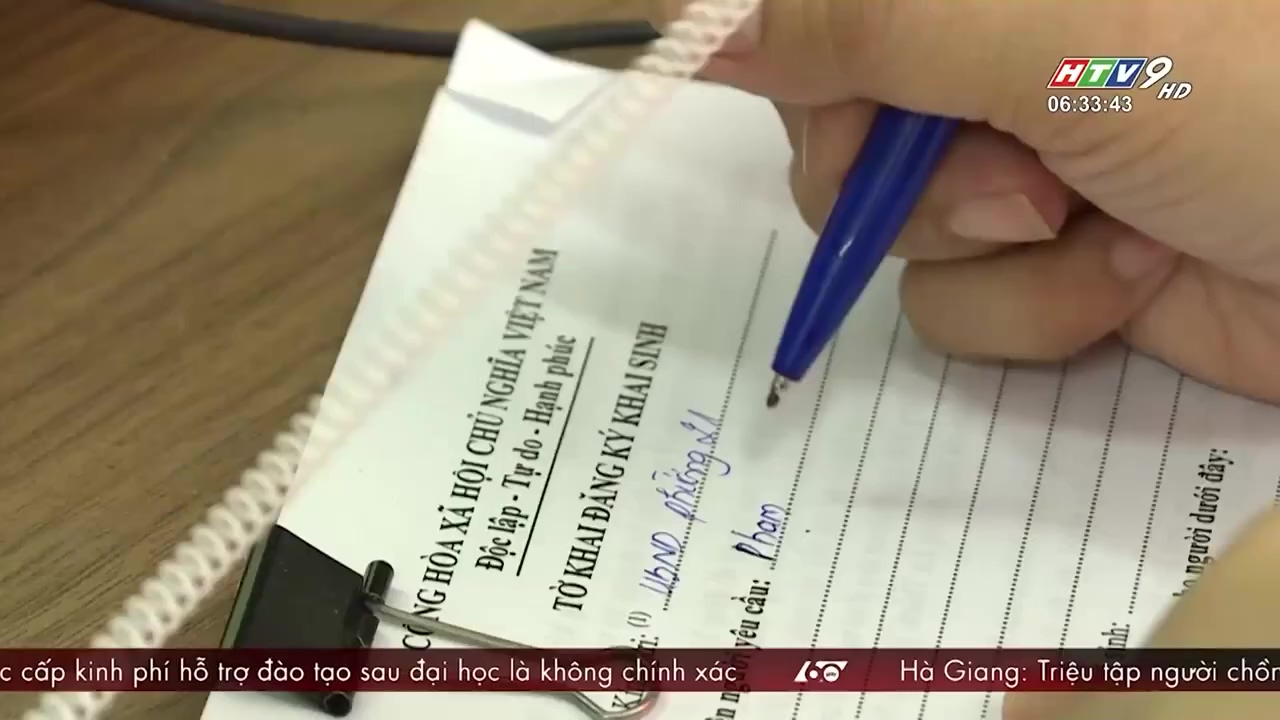 HTV9 HD
06:33:43
CỘNG HÒA XÃ HỘI CHỦ NGHĨA VIỆT NAM
Độc lập - Tự do - Hạnh phúc
TỜ KHAI ĐĂNG KÝ KHAI SINH
(1) UBND phường 21
người yêu cầu: Phạm
người dưới đây:
cấp kinh phí hỗ trợ đào tạo sau đại học là không chính xác 60 Hà Giang: Triệu tập người